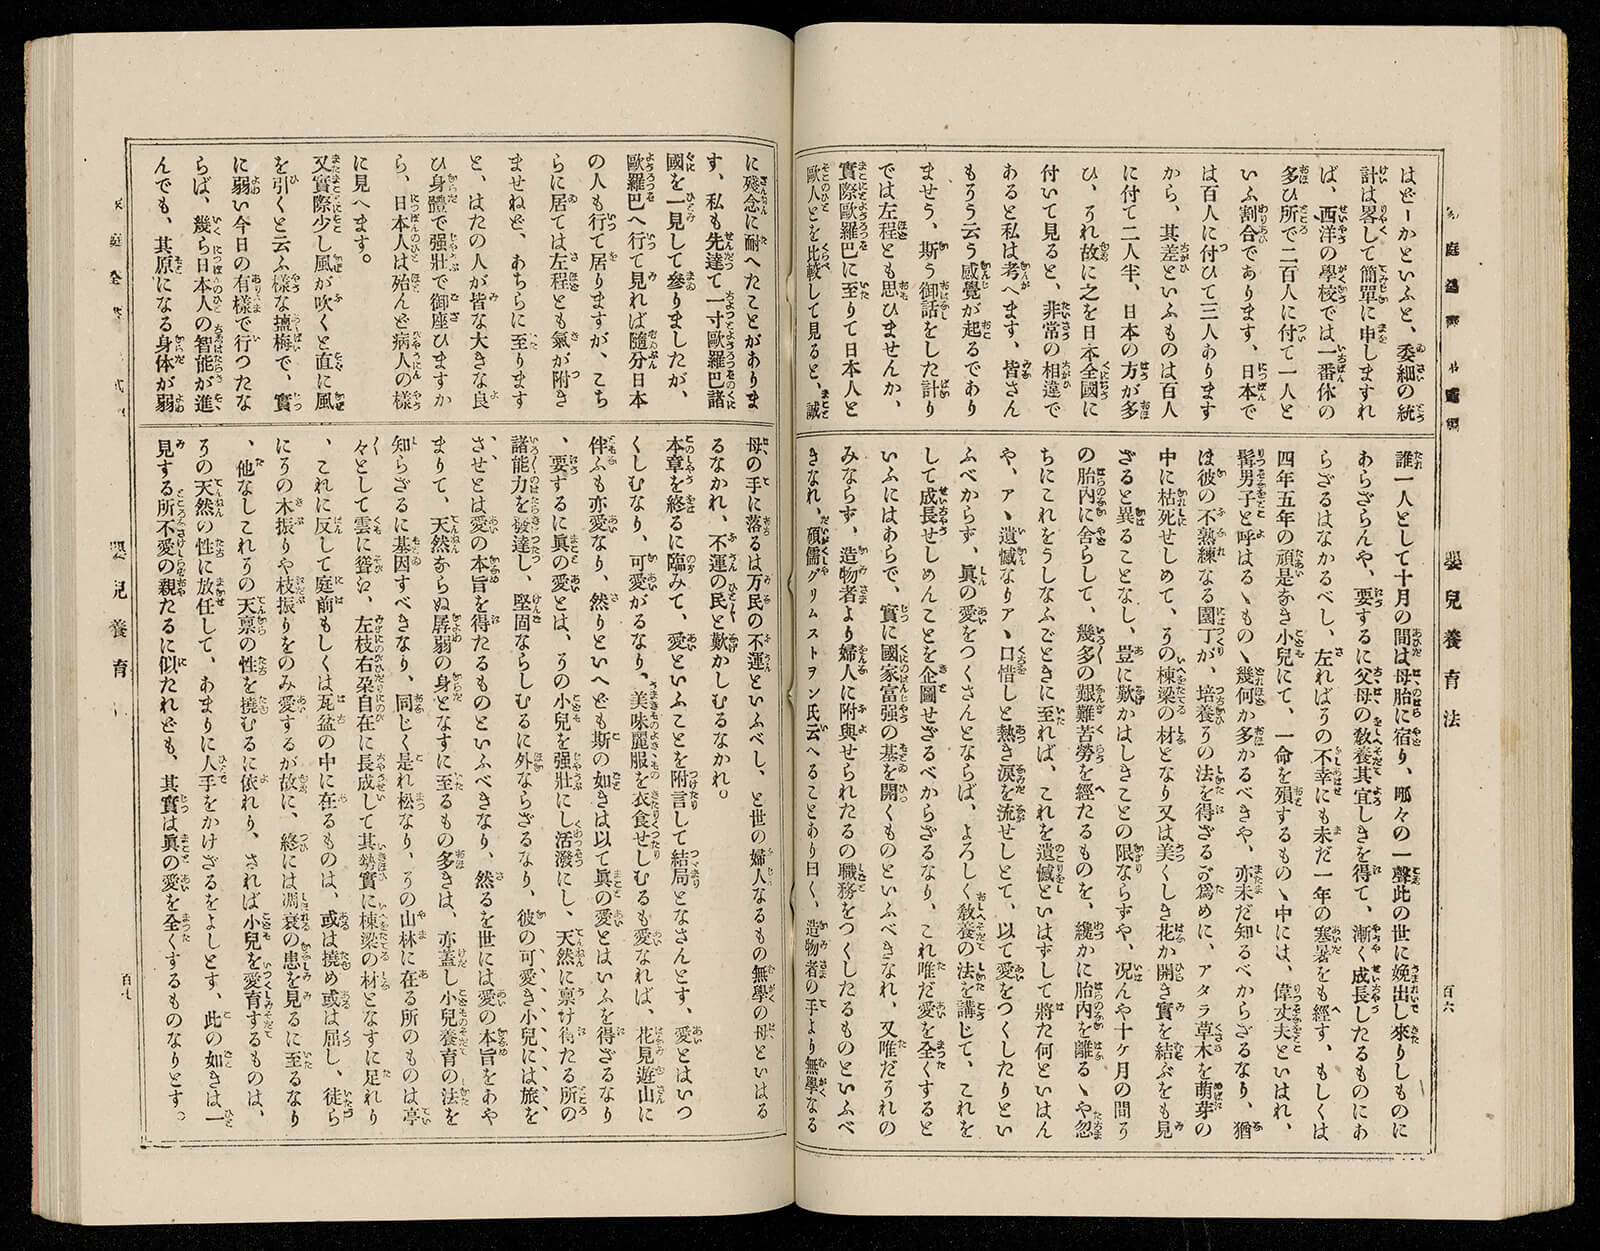 嬰兒養育法
百六
はどーかといふと、委細の統
計は畧して簡單に申しますれ
ば、西洋の學校では一番休の
多ひ所で二百人に付て一人と
いふ割合であります、日本で
は百人に付ひて三人あります
から、其差といふものは百人
に付て二人半、日本の方が多
ひ、うれ故に之を日本全國に
付いて見ると、非常の相違で
あると私は考へます、皆さん
もうう云う感覺が起るであり
ませう、斯う御話をした計り
では左程とも思ひませんか、
實際歐羅巴に至りて日本人と
歐人とを比較して見ると、誠
誰一人として十月の間は母胎に宿り、呱々の一聲此の世に娩出し來りしものに
あらざらんや、要するに父母の敎養其宜しきを得て、漸く成長したるものにあ
らざるはなかるべし、左ればうの不幸にも未だ一年の寒暑をも經す、もしくは
四年五年の頑是なき小兒にて、一命を殞するもの丶中には、偉丈夫といはれ、
髯男子と呼はる丶もの丶幾何か多かるべきや、亦未だ知るべからざるなり、猶
ほ彼の不熟練なる園丁が、培養うの法を得ざるが爲めに、アタラ草木を萌芽の
中に枯死せしめて、うの棟梁の材となり又は美くしき花か開き實を結ぶをも見
ざると異ることなし、豈に歎かはしきことの限ならずや、况んや十ヶ月の間う
の胎内に舍らして、幾多の艱難苦勞を經たるものを、纔かに胎内を離る丶や忽
ちにこれをうしなふごときに至れば、これを遺憾といはずして將た何といはん
や、ア丶遺憾なりア丶口惜しと熱き涙を流せしとて、以て愛をつくしたりとい
ふべからず、眞の愛をつくさんとならば、よろしく敎養の法を講じて、これを
して成長せしめんことを企圖せざるべからざるなり、これ唯だ愛を全くすると
いふにはあらで、實に國家富强の基を開くものといふべきなれ、又唯だうれの
みならず、造物者より婦人に附與せられたるの職務をつくしたるものといふべ
きなれ、碩儒グリムストヲン氏云へることあり曰く、造物者の手より無學なる
に殘念に耐へたことがありま
す、私も先達て一寸歐羅巴諸
國を一見して參りましたが、
歐羅巴へ行て見れば隨分日本
の人も行て居りますが、こち
らに居ては左程とも氣が附き
ませねど、あちらに至ります
と、はたの人が皆な大きな良
ひ身體で强壯で御座ひますか
ら、日本人は殆んど病人の樣
に見へます。
又實際少し風が吹くと直に風
を引くと云ふ樣な塩梅で、實
に弱い今日の有樣で行つたな
らば、幾ら日本人の智能が進
んでも、其原になる身体が弱
母の手に落るは万民の不運といふべし、と世の婦人なるもの無學の母といはる
るなかれ、不運の民と歎かしむるなかれ。
本章を終るに臨みて、愛といふことを附言して結局となさんとす、愛とはいつ
くしむなり、可愛がるなり、美味麗服を衣食せしむるも愛なれば、花見遊山に
伴ふも亦愛なり、然りといへども斯の如きは以て眞の愛とはいふを得ざるなり
、要するに眞の愛とは、うの小兒を强壯にし活潑にし、天然に禀け得たる所の
諸能力を發達し、堅固ならしむるに外ならざるなり、彼の可愛き小兒には、旅を
させとは愛の本旨を得たるものといふべきなり、然るを世には愛の本旨をあや
まりて、天然ならぬ孱弱の身となすに至るもの多きは、亦蓋し小兒養育の法を
知らざるに基因すべきなり、同じく是れ松なり、うの山林に在る所のものは亭
々として雲に聳ね、左枝右朶自在に長成して其勢實に棟梁の材となすに足れり
、これに反して庭前もしくは瓦盆の中に在るものは、或は撓め或は屈し、徒ら
にうの木振りや枝振りをのみ愛するが故に、終には凋衰の患を見るに至るなり
、他なしこれうの天禀の性を撓むるに依れり、されば小兒を愛育するものは、
うの天然の性に放任して、あまりに人手をかけざるをよしとす、此の如きは一
見する所不愛の親たるに似たれども、其實は眞の愛を全くするものなりとす。
嬰兒養育
百七